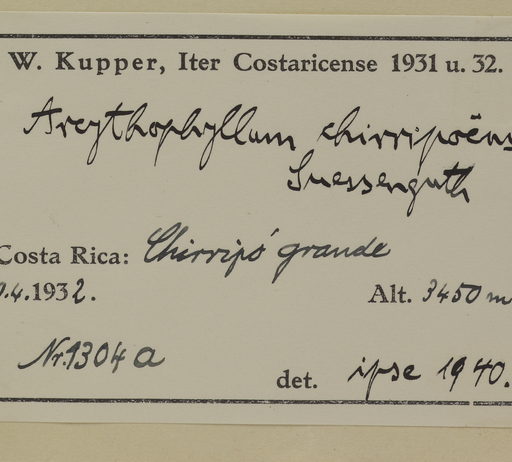 W. Kupper, Iter Costaricense 1931 u. 32.
Arcythophyllum chirripoëns
Suessenguth
Costa Rica: Chirripó grande
.4.1932. Alt. 3450 m
Nr. 1304 a
det. ipse 1940.